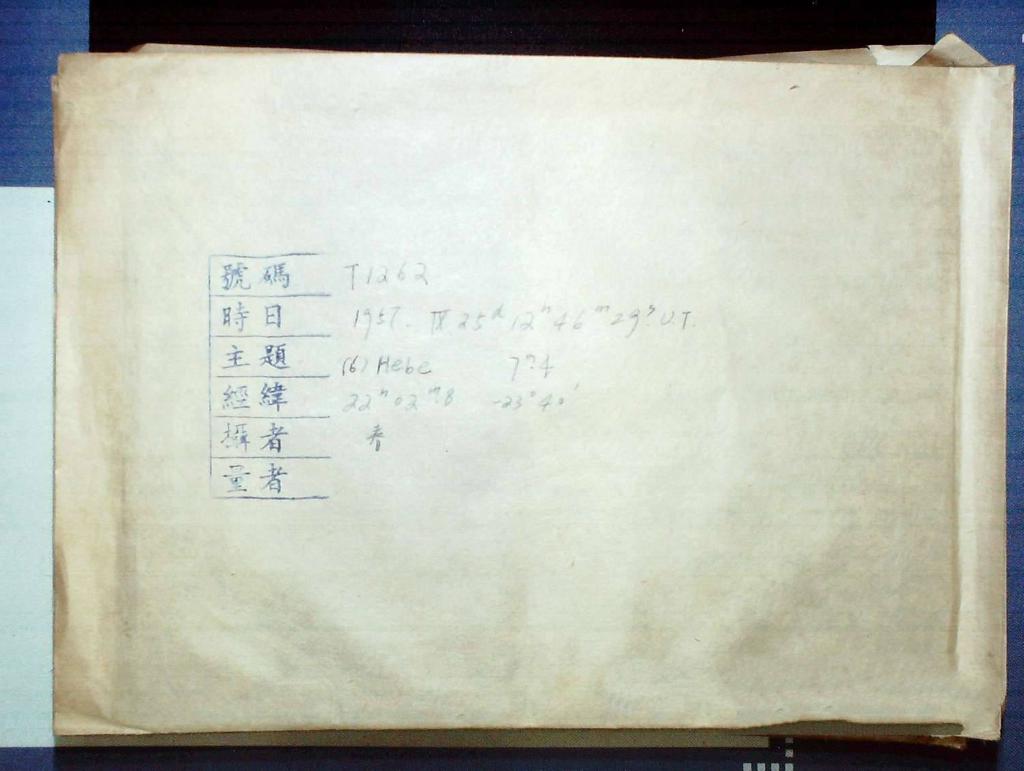 號碼 T1262
時日 1957. IX 25ᵈ 12ʰ 46ᵐ 29ˢ U.T.
主題 (6) Hebe 7ᵐ.4
經緯 22ʰ 02ᵐ.8 -23° 40′
攝者
量者